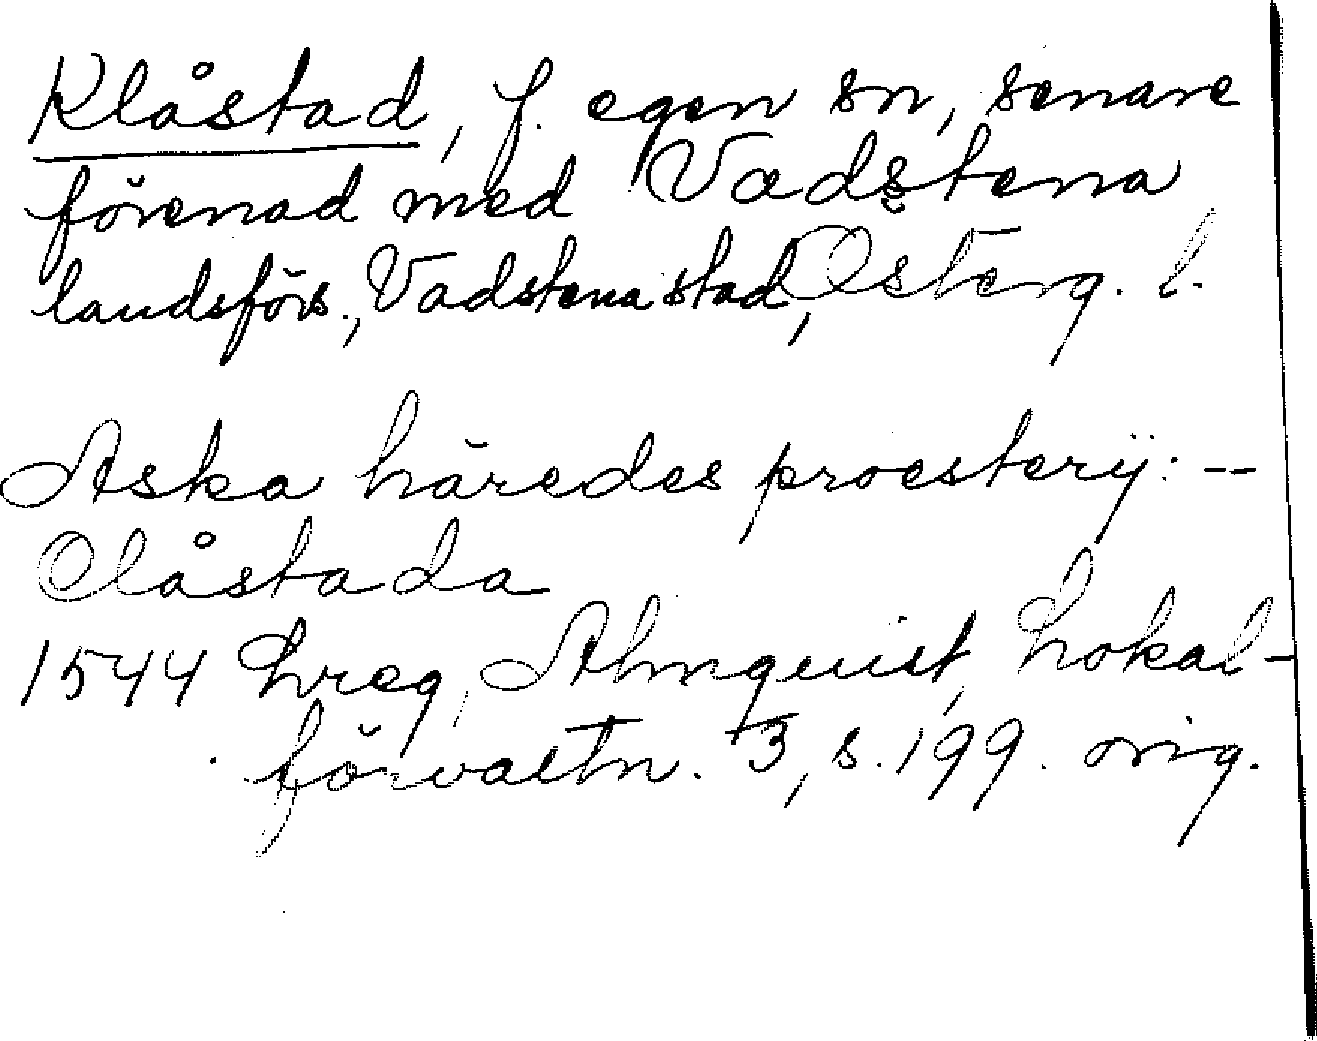 Klåstad, f. egen sn, senare
förenad med Vadstena
landsförs., Vadstena stad, Österg. l.
Aska häredes proesterij: --
Clåstada
1544 Lreg, Almquist, Lokal-
förvaltn. 3, s. 199. orig.